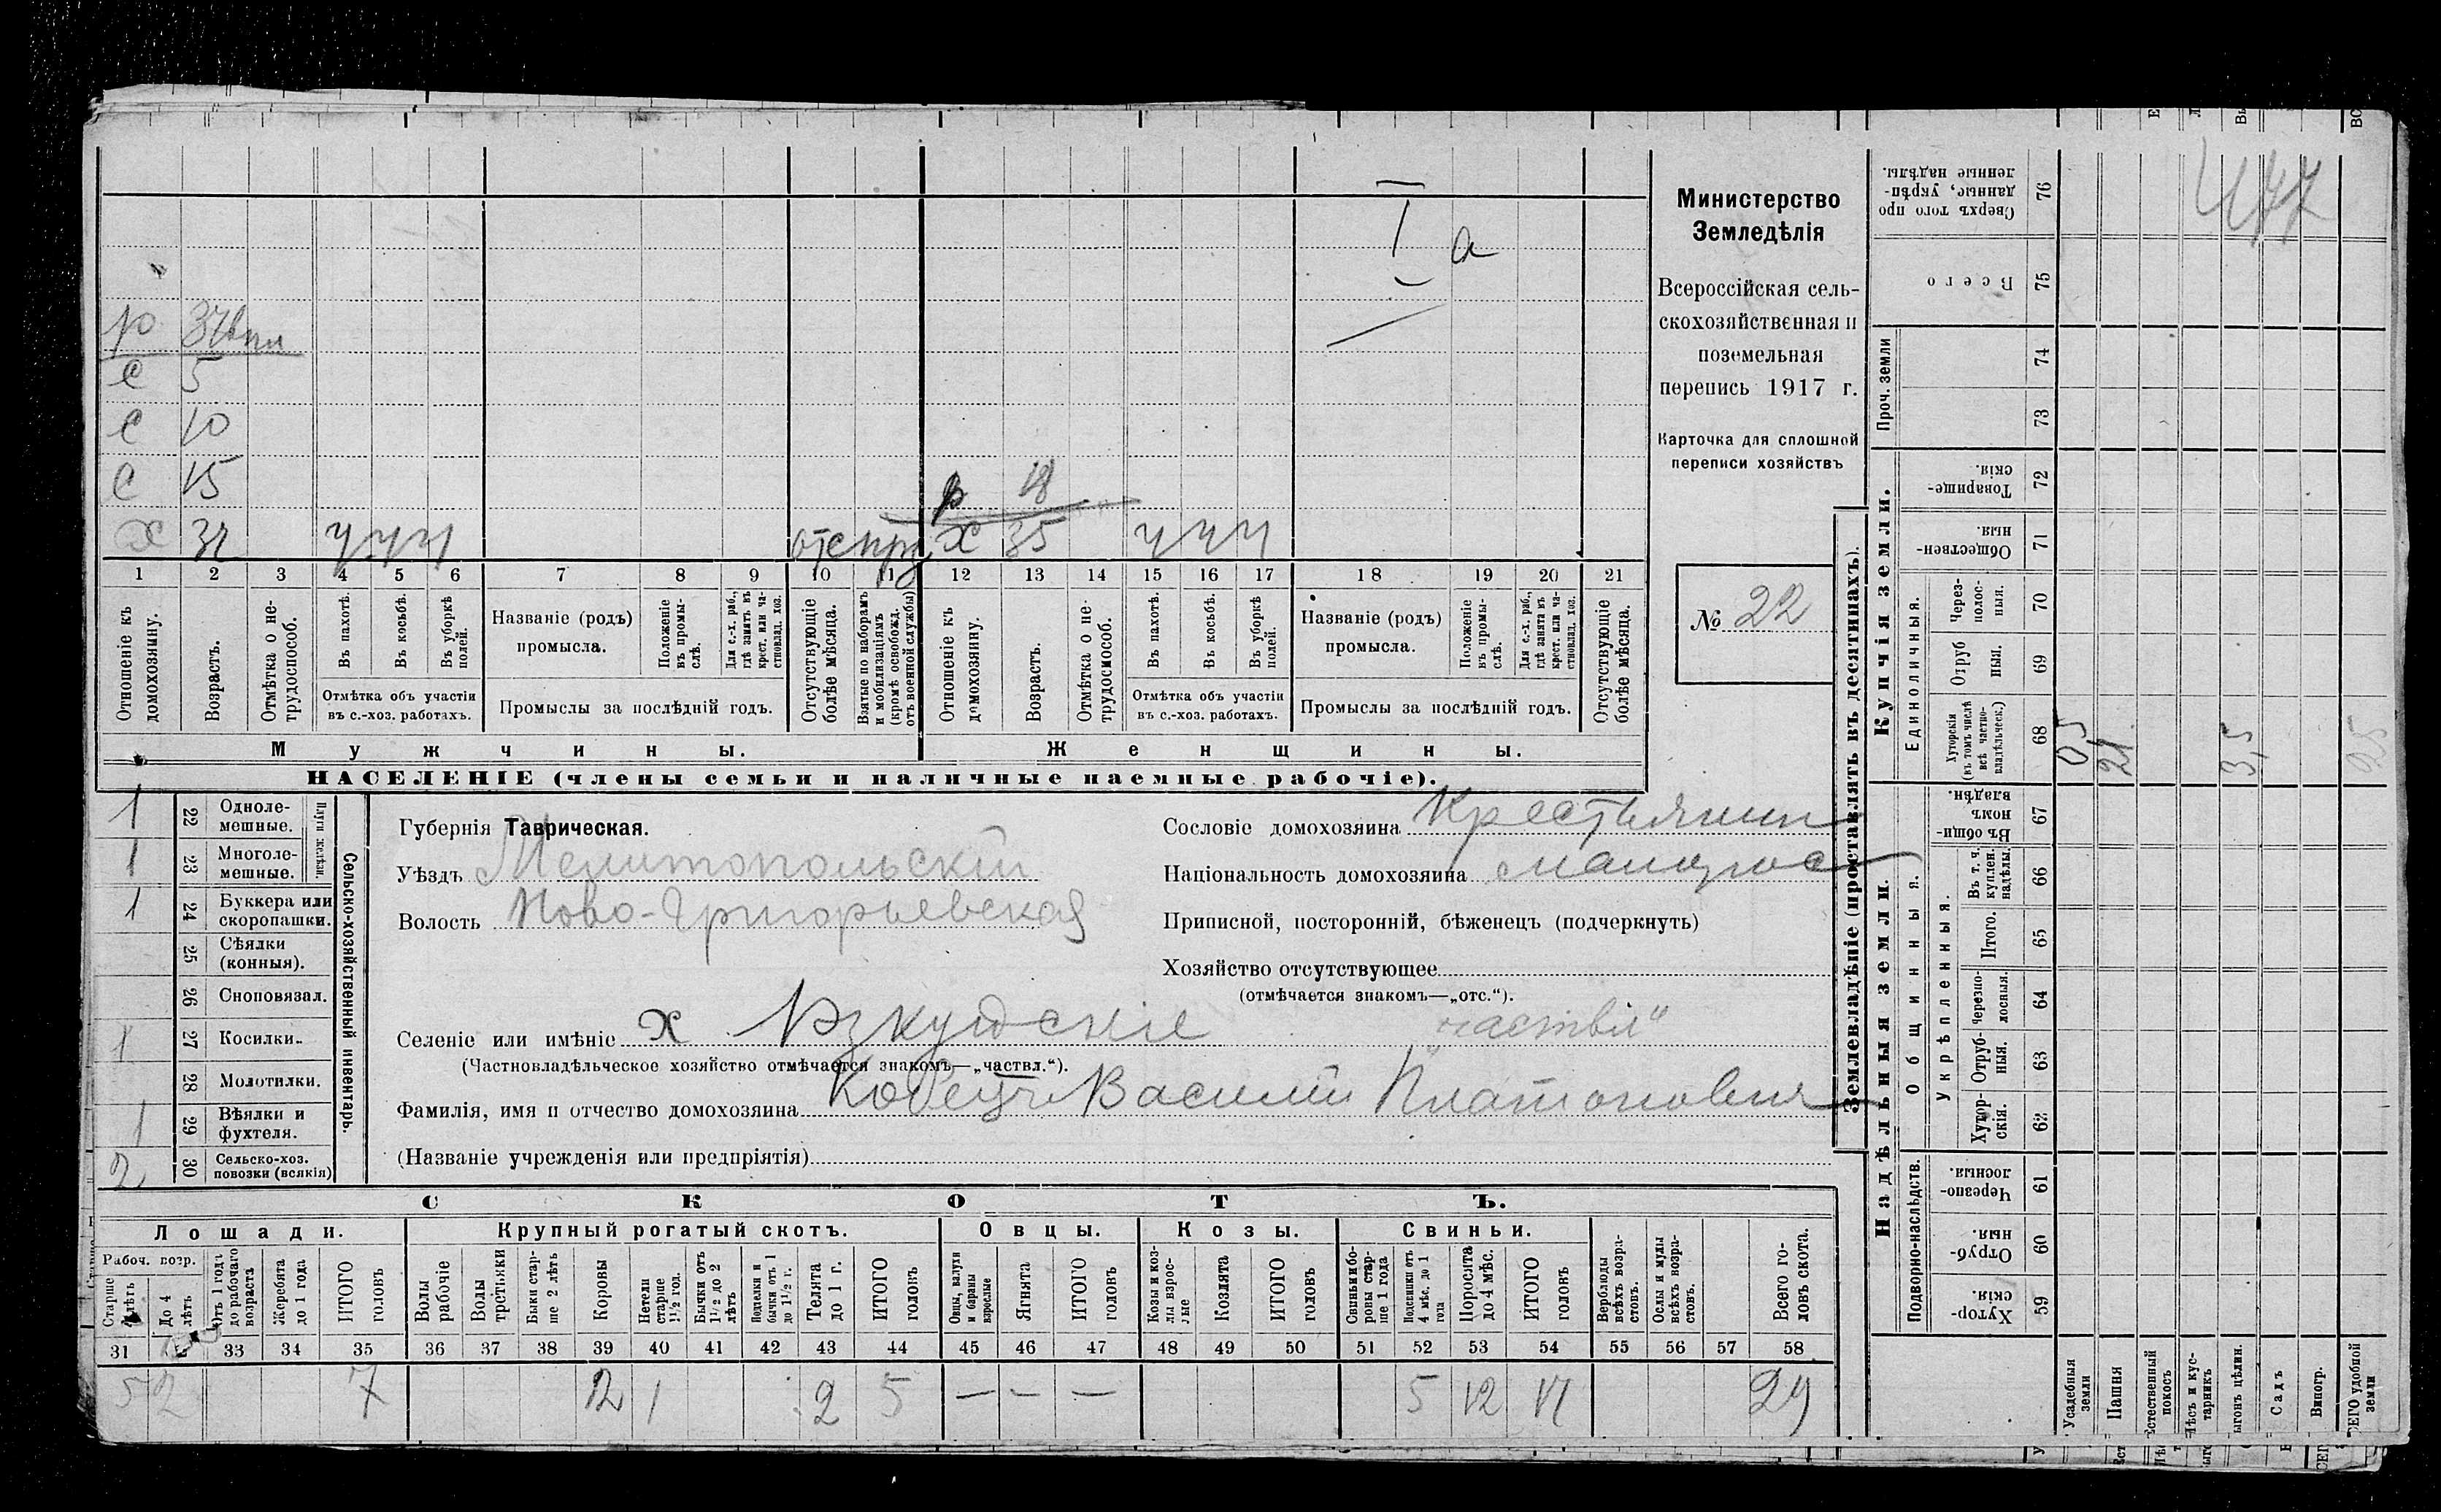 Министерство
Земледѣлія
Всероссійская сель-
скохозяйственная и
поземельная
перепись 1917 г.
Карточка для сплошной
переписи хозяйствъ
№ 22
I а
р
с 5
с 10
с 15
р 18
х ууу
х 35 ууу
1 2 3 4 5 6 7 8 9 10 11 12 13 14 15 16 17 18 19 20 21
Отношеніе къ домохозяину.
Возрастъ.
Отмѣтка о не-трудоспособ.
Въ пахотѣ.
Въ косьбѣ.
Въ уборкѣ полей.
Отмѣтка объ участіи
въ с.-хоз. работахъ.
Названіе (родъ)
промысла.
Положеніе въ промы-слѣ.
Для с.-х. раб., гдѣ занятъ въ крест. или ча-стновлад. хоз.
Промыслы за послѣдній годъ.
Отсутствующіе болѣе мѣсяца.
Взятые по наборамъ и мобилизаціямъ (кромѣ освобожд. отъ военной службы)
Отношеніе къ домохозяину.
Возрастъ.
Отмѣтка о не-трудоспособ.
Въ пахотѣ.
Въ косьбѣ.
Въ уборкѣ полей.
Отмѣтка объ участіи
въ с.-хоз. работахъ.
Названіе (родъ)
промысла.
Положеніе въ промы-слѣ.
Для с.-х. раб., гдѣ занята въ крест. или ча-стновлад. хоз.
Промыслы за послѣдній годъ.
Отсутствующіе болѣе мѣсяца.
Мужчины.
Женщины.
НАСЕЛЕНІЕ (члены семьи и наличные наемные рабочіе).
Сельско-хозяйственный инвентарь.
Плуги желѣзн.
1 22 Одноле-мешные.
1 23 Многоле-мешные.
1 24 Буккера или скоропашки.
25 Сѣялки (конныя).
26 Сноповязал.
1 27 Косилки.
28 Молотилки.
1 29 Вѣялки и фухтеля.
2 30 Сельско-хоз. повозки (всякія)
Губернія Таврическая.
Уѣздъ Мелитопольскій
Волость Ново-Григорьевская
Сословіе домохозяина Крестьянин
Національность домохозяина малорос
Приписной, посторонній, бѣженецъ (подчеркнуть)
Хозяйство отсутствующее
(отмѣчается знакомъ—„отс.“).
Селеніе или имѣніе х „частвл“
(Частновладѣльческое хозяйство отмѣчается знакомъ—„частвл.“).
Фамилія, имя и отчество домохозяина Кобецъ Василій Платоновичъ
(Названіе учрежденія или предпріятія)
СКОТЪ.
Лошади.
Крупный рогатый скотъ.
Овцы.
Козы.
Свиньи.
Рабоч. возр.
Старше 4 лѣтъ
До 4 лѣтъ
Отъ 1 года до рабочаго возраста
Жеребята до 1 года
ИТОГО головъ
Волы рабочіе
Волы третьяки
Быки стар-ше 2 лѣтъ
Коровы
Нетели старше 1½ год.
Бычки отъ 1½ до 2 лѣтъ
Подтелки и бычки отъ 1 до 1½ г.
Телята до 1 г.
ИТОГО головъ
Овцы, валухи и бараны взрослые
Ягнята
ИТОГО головъ
Козы и коз-лы взрос-лые
Козлята
ИТОГО головъ
Свиньи и бо-ровы стар-ше 1 года
Подсвинки отъ 4 мѣс. до 1 года
Поросята до 4 мѣс.
ИТОГО головъ
Верблюды всѣхъ возра-стовъ.
Ослы и мулы всѣхъ возра-стовъ.
Всего го-ловъ скота.
31 33 34 35 36 37 38 39 40 41 42 43 44 45 46 47 48 49 50 51 52 53 54 55 56 57 58
5 2 7 2 1 2 5 — — — 5 12 17 29
Землевладѣніе (проставлять въ десятинахъ).
Надѣльныя земли.
Купчія земли.
Проч. земли
Подворно-наслѣдств.
Общинныя.
Укрѣпленныя.
Единоличныя.
Сверхъ того про-данные, укрѣп-ленные надѣлы. 76
Всего 75
74
73
Товарище-скія. 72
Обществен-ныя 71
Через-полос-ныя. 70
Отруб-ныя. 69
Хуторскія (въ томъ числѣ всѣ частно-владѣльческ.) 68
Въ общи-номъ владѣн. 67
Въ т. ч. куплен. надѣлы. 66
Итого. 65
Черезпо-лосныя. 64
Отруб-ныя. 63
Хутор-скія. 62
Черезпо-лосныя. 61
Отруб-ныя. 60
Хутор-скія. 59
05 21 3,5
Усадебныя земли
Пашня
Естественный покосъ
Лѣсъ и кус-тарникъ
Выгонъ цѣлин.
Садъ
Виногр.
ВСЕГО удобной земли